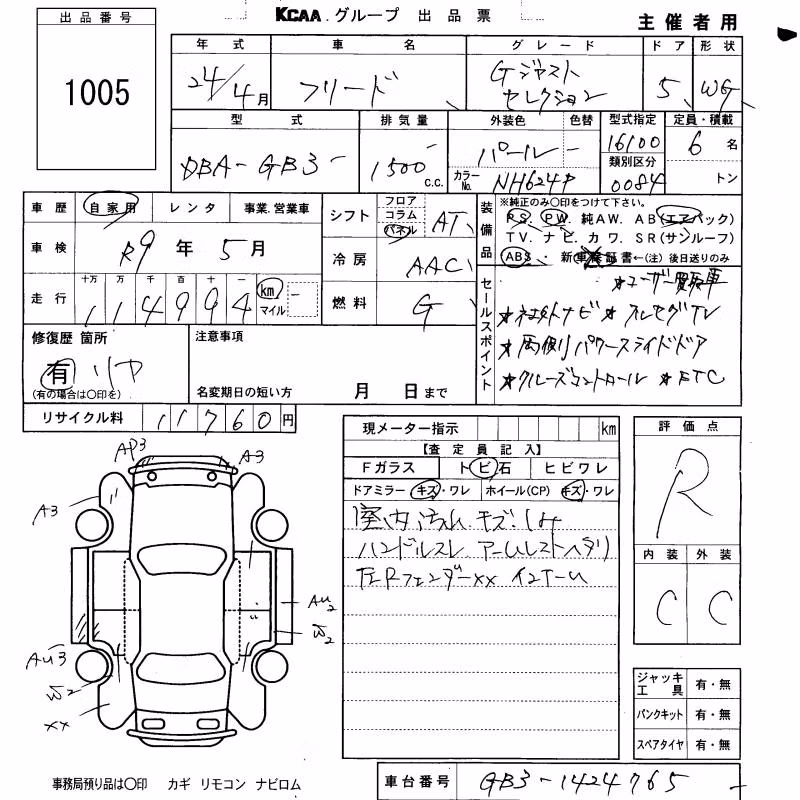 KCAA.グループ 出品票
主催者用
出品番号
1005
年式 車名 グレード ドア 形状
24/4月 フリード Gジャスト セレクション 5 WG
型式 排気量 外装色 色替 型式指定 定員・積載
DBA-GB3 1500 c.c. パール - 16100 6 名
カラーNo. NH624P 類別区分 0084 トン
車歴 自家用 レンタ 事業.営業車
シフト フロア コラム パネル AT
装備品 ※純正のみ○印をつけて下さい。
PS. PW. 純AW. AB(エアバック)
TV. ナビ. カワ. SR(サンルーフ)
ABS・ 新車保証書←(注)後日送りのみ
車検 R9 年 5 月
冷房 AAC
走行 十万 万 千 百 十 一 km マイル -
114994
燃料 G
セールスポイント
★ユーザー買取車
★社外ナビ ★フルセグTV
★両側パワースライドドア
★クルーズコントロール ★ETC
修復歴 箇所
有 リヤ
(有の場合は○印を)
注意事項
名変期日の短い方 月 日まで
リサイクル料 11760 円
現メーター指示 km
【査定員記入】
Fガラス トビ石 ヒビワレ
ドアミラー キズ・ワレ ホイール(CP) キズ・ワレ
室内汚れ キズ.しみ
ハンドルスレ アームレストヘタリ
左Rフェンダーxx インナーU
評価点
R
内装 外装
C C
AP3
A3
A3
AU2
W2
AU3
W2
XX
ジャッキ工具 有・無
パンクキット 有・無
スペアタイヤ 有・無
事務局預り品は○印 カギ リモコン ナビロム
車台番号 GB3-1424765